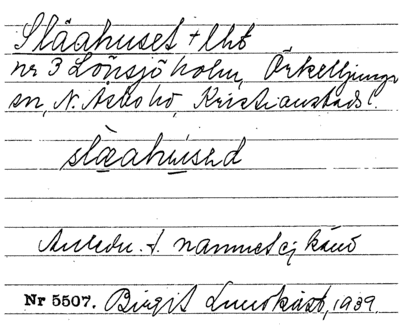 Slåahuset + lht
nr 3 Lönsjöholm, Örkelljunga
sn, N. Åsbo hd, Kristianstads l.
slåahusəd
Anledn. t. namnet ej känd
Nr 5507. Birgit Lundkvist, 1939.